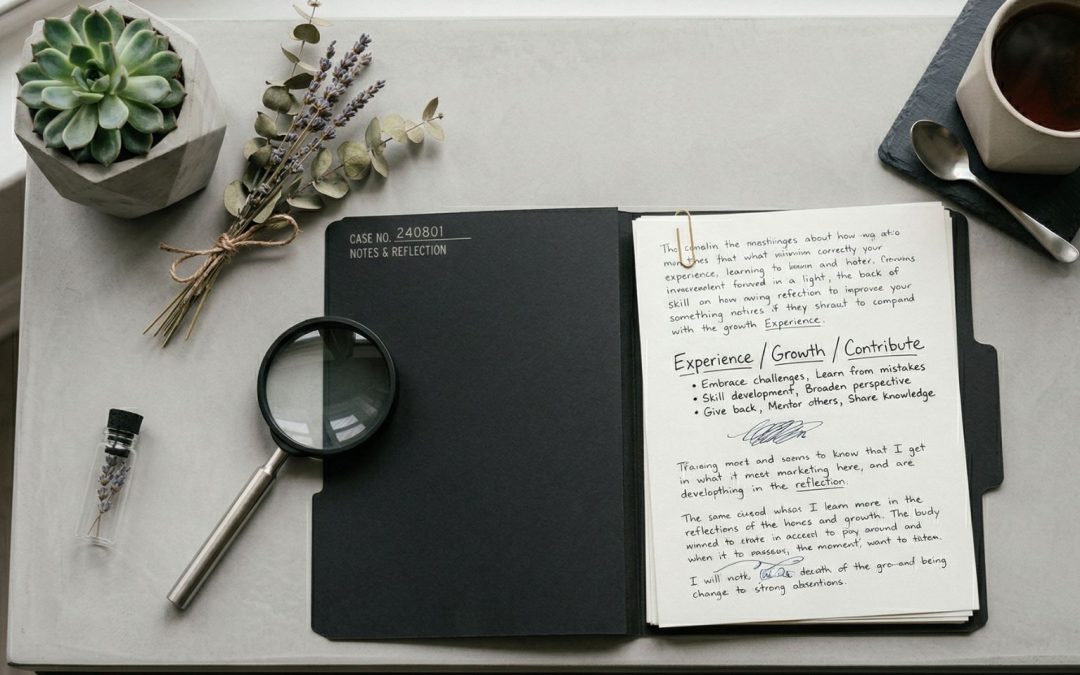 CASE NO. 240801
NOTES & REFLECTION
the mostlinges about how
that what correctly your
experience, learning to and hoter.
forved in a light, the back of
skill on how owing refection to improve your
something notires if they shraut to compand
with the growth Experience.
Experience / Growth / Contribute
• Embrace challenges, Learn from mistakes
• Skill development, Broaden perspective
• Give back, Mentor others, Share knowledge
Training moet and seems to know that I get
in what it meet marketing here, and are
developthing in the reflection.
The same I learn more in the
reflections of the hones and growth. The budy
winned to in to pay around and
when it to the moment, want to
I will decath of the and being
change to strong absentions.